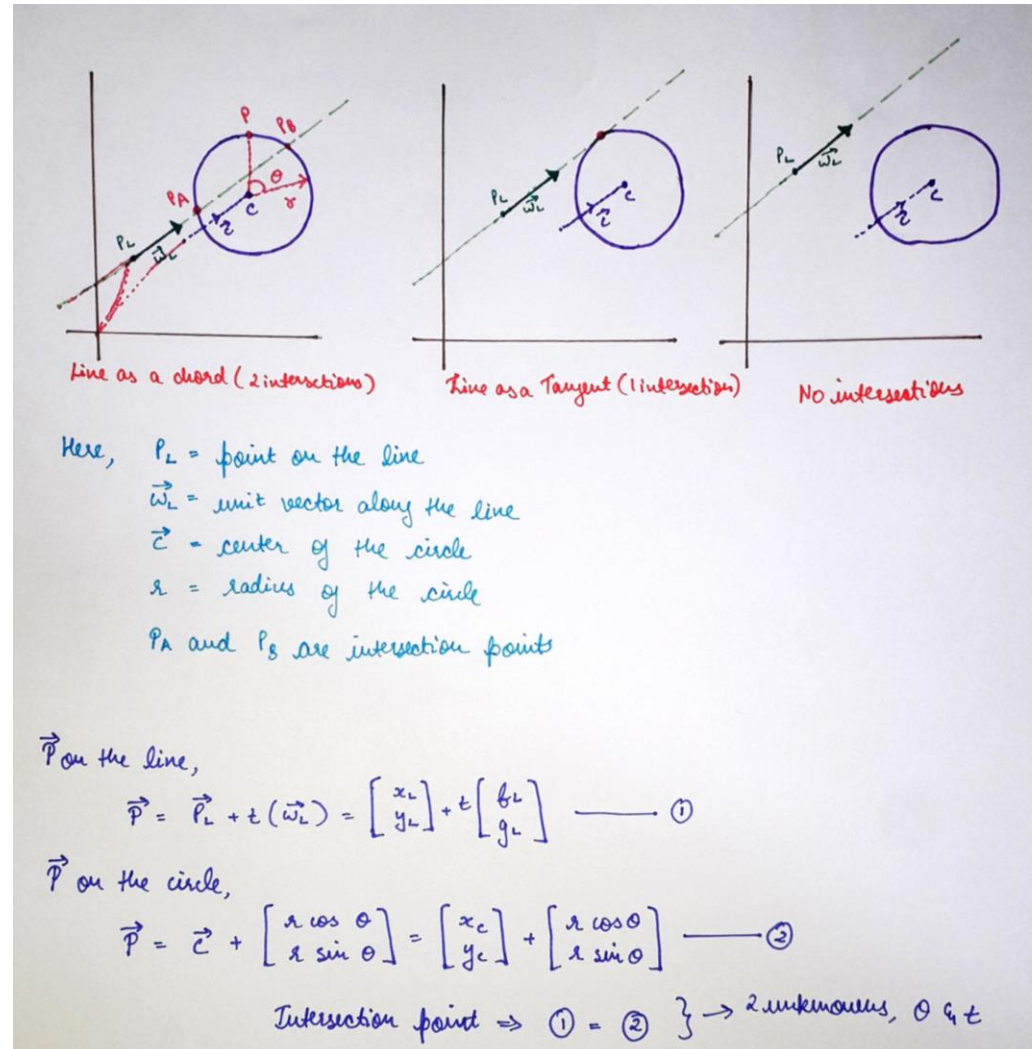 P
PB
PA
θ
r
C
c⃗
PL
w⃗L
PL
w⃗L
c⃗
C
PL
w⃗L
c⃗
C
Line as a chord (2 intersections)
Line as a Tangent (1 intersection)
No intersections
Here, PL = point on the line
w⃗L = unit vector along the line
c⃗ = center of the circle
r = radius of the circle
PA and PB are intersection points
P⃗ on the line,
P⃗ = P⃗L + t(w⃗L) = [xL yL] + t[fL gL] —— ①
P⃗ on the circle,
P⃗ = c⃗ + [r cos θ r sin θ] = [xc yc] + [r cos θ r sin θ] —— ②
Intersection point ⇒ ① = ② } → 2 unknowns, θ & t